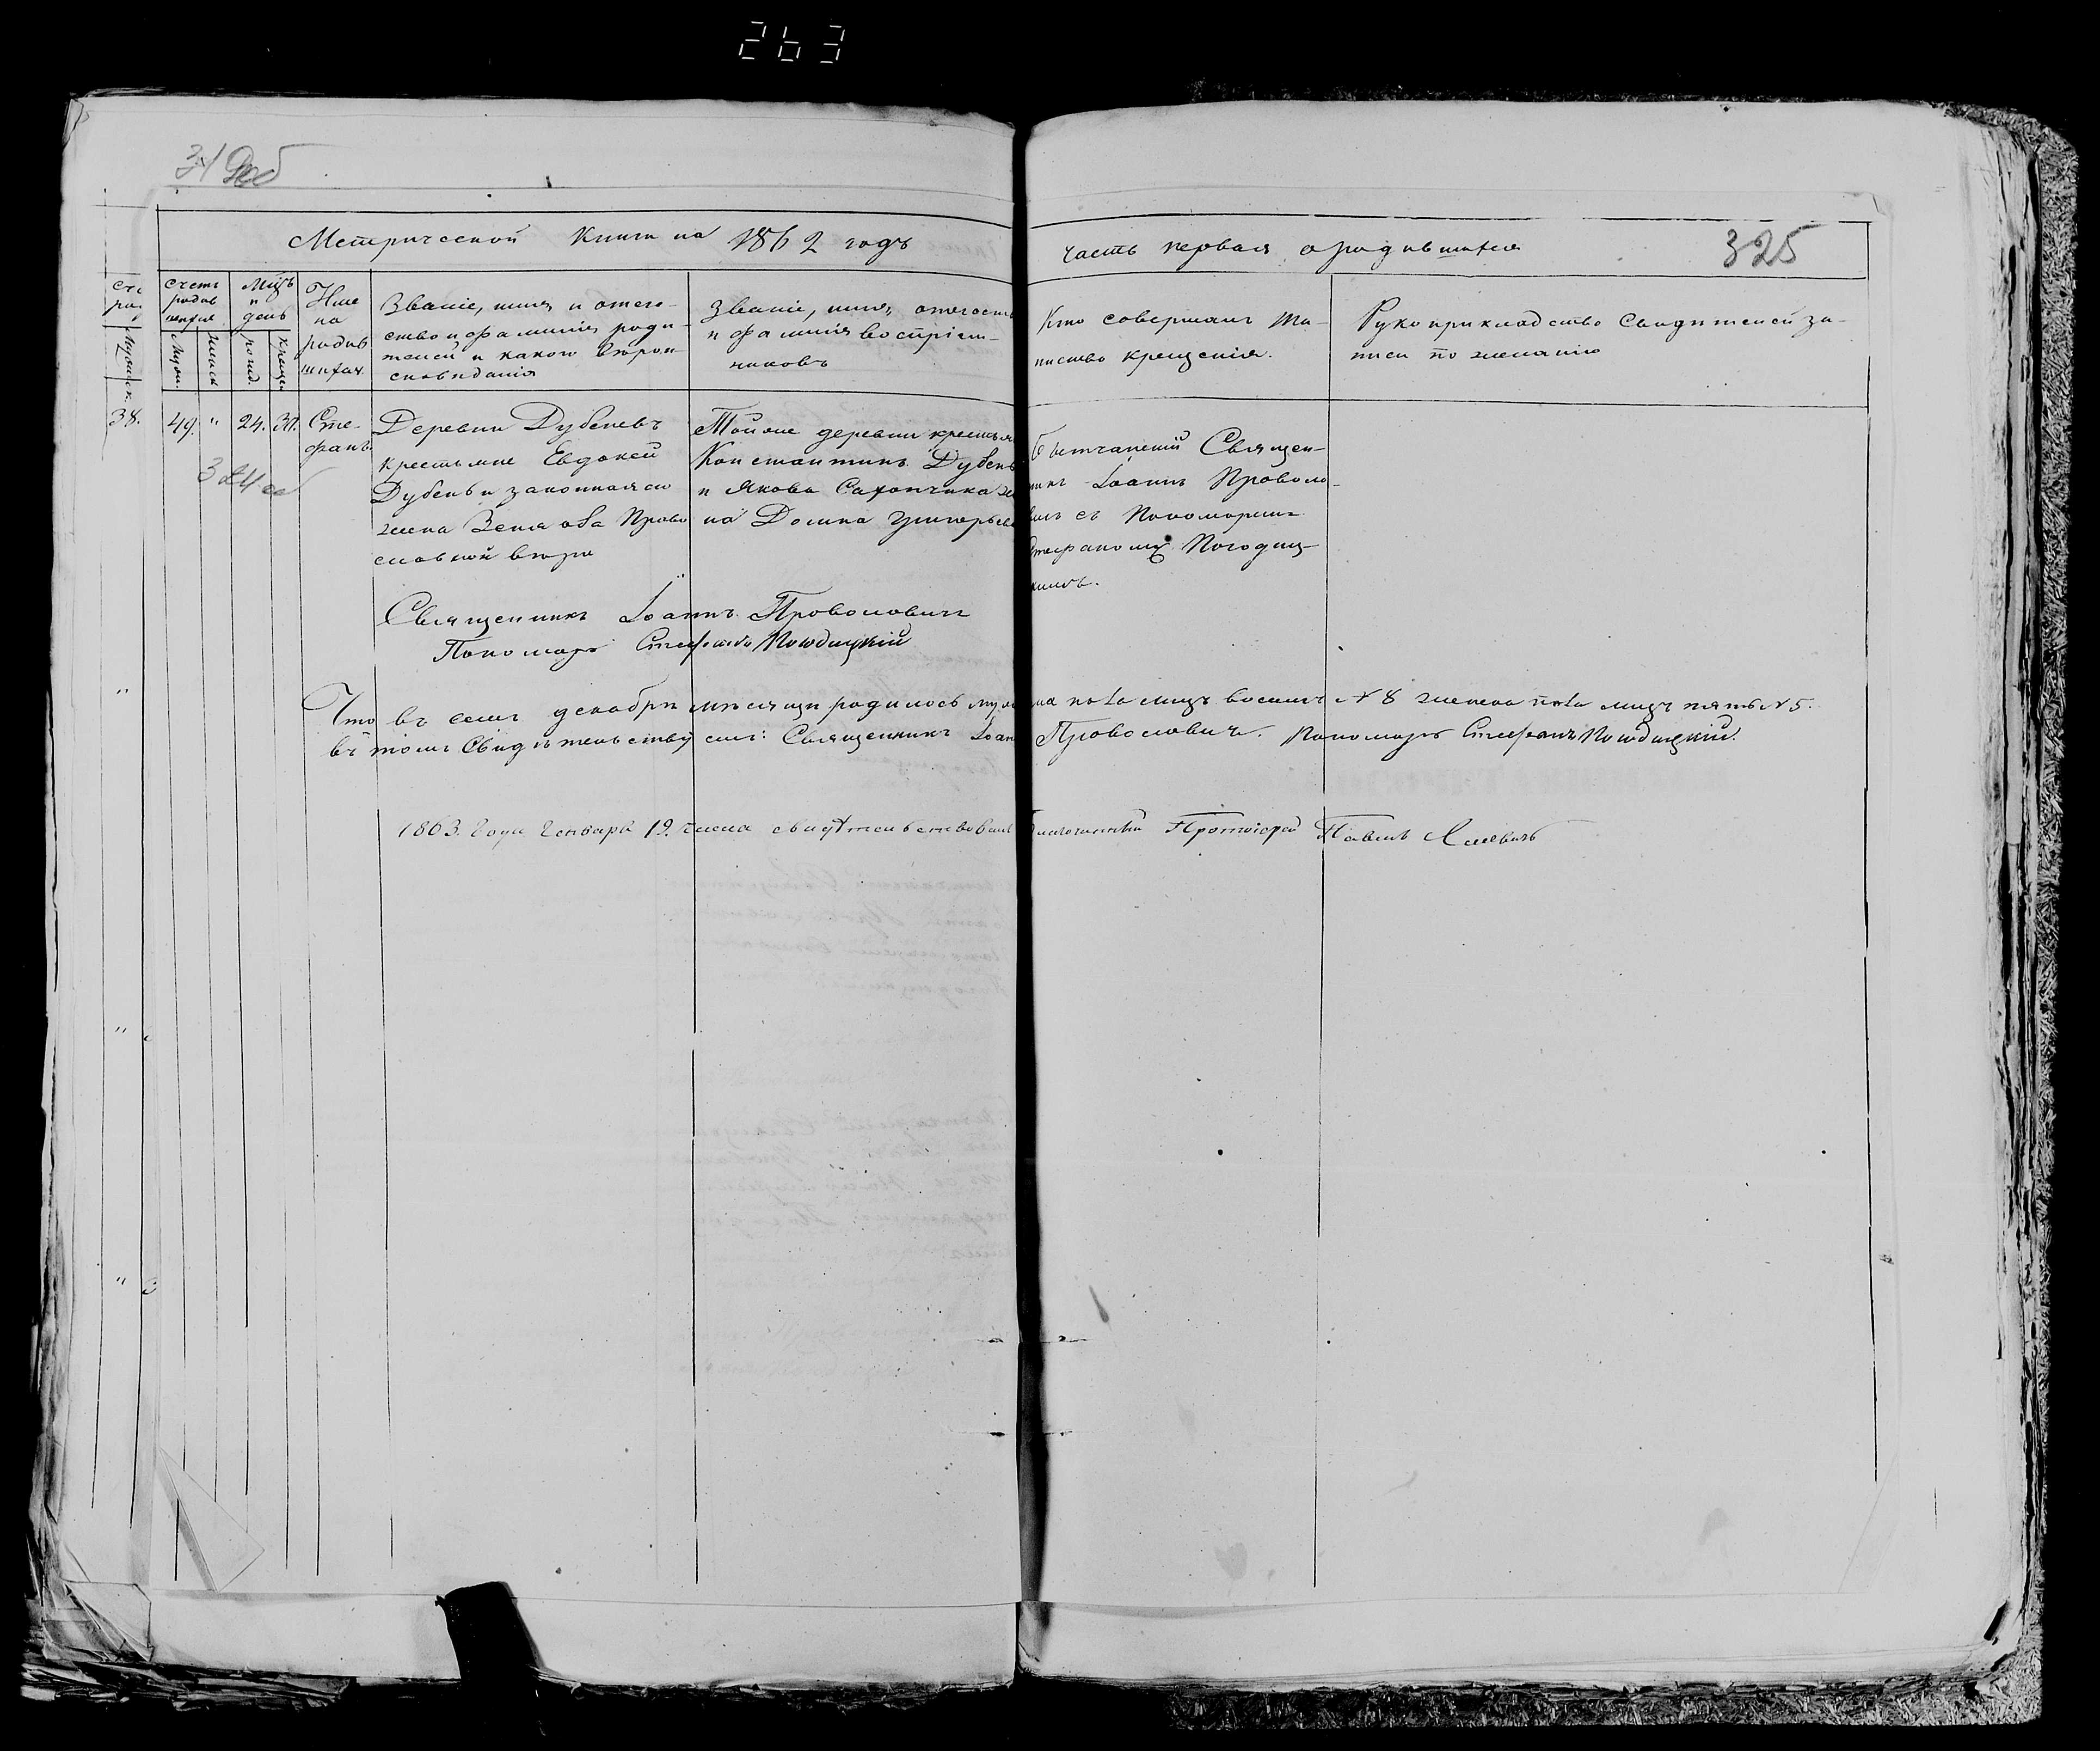 263
325
Метрической Книги на 1862 годъ
часть первая о родившихся
Счетъ родив шихся
Муж.
Женск
Мѣсъ и день
рожд.
крещен
Име на родив шихся
Званіе, имя и отече-
ство и фамилія роди-
телей и какого вѣрои-
сповиданія
Званіе, имя, отечеств
и фамилія воспріем-
никовъ
Кто совершалъ Та-
инство крещенія.
Рукоприкладство свидителей за-
писи по желанію
38.
49. " 24. 30.
Сте-
фанъ.
Деревни Дубеневъ
крестьяне Евдокей
Дубень и законная его
жена Зеновѳа Право
славной вѣри
Той же деревни крестья
Константинъ Дубень
и Якова Сахончика же
на Домна Григорьева
Священ-
никъ Іоаннъ Проволо-
вичъ съ Пономоремъ
Стефаномъ Погодиц-
кимъ.
Священникъ Іоаннъ Проволовичъ
Пономарь Стефанъ Погодицкій
Что въ семъ декабри мѣсяци родилось мужеска пола лицъ восемъ №8 женска пола лицъ пять №5.
въ томъ Свидѣтельствуемъ: Священникъ Іоаннъ Проволовичъ. Пономарь Стефанъ Погодицкій.
1863. Года Генваря 19. числа свидѣтельствовалъ Благочинный Протоіерей Павелъ